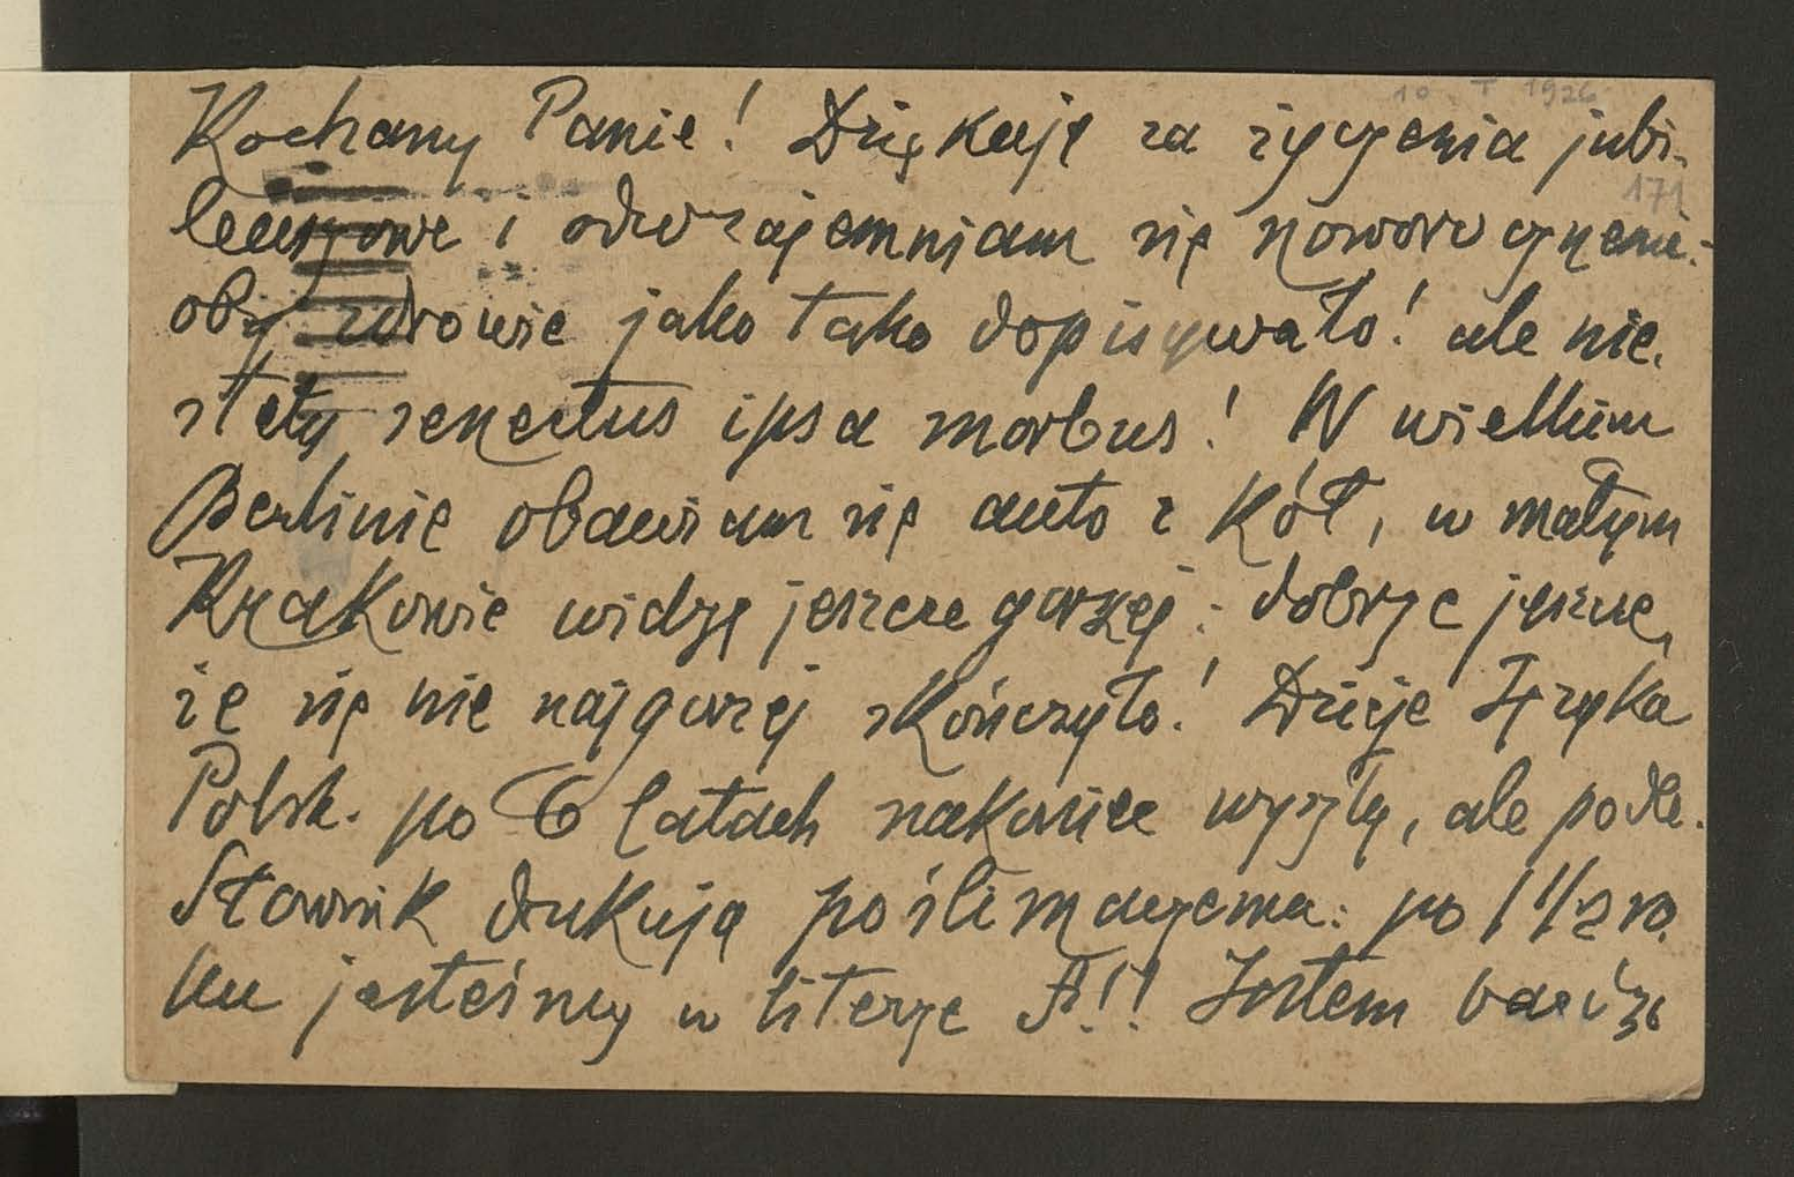 10. I 1926
Kochany Panie! Dziękuję za życzenia jubi-
171
leuszowe i odwzajemniam się noworocznemi:
oby zdrowie jako tako dopisywało! ale nie-
stety senectus ipsa morbus! W wielkim
Berlinie obawiam się auto z kół, w małym
Krakowie widzę jeszcze gorzej: dobrze jeszcze,
że się nie najgorzej skończyło! Dzieje Języka
Polsk. po 6 latach nakoniec wyszły, ale podle.
Słownik drukują po ślimaczemu: po 1 1/2 ro-
ku jesteśmy w literze F!! Jestem bardzo